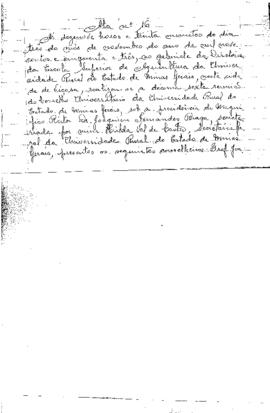 Ata nº 16
Às dezenove horas e trinta minutos do dia
três do mês de novembro do ano de mil nove-
centos e cinquenta e três, no gabinete do Diretor
da Escola Superior de Agricultura da Univer-
sidade Rural do Estado de Minas Gerais, nesta cida-
de de Viçosa, realizou-se a décima sexta reunião
do Conselho Universitário da Universidade Rural do
Estado de Minas Gerais, sob a presidência do Magní-
fico Reitor Joaquim Fernandes Braga, secreta-
riada por mim Val de Castro, Secretária
da Universidade Rural do Estado de Minas
Gerais, presentes os seguintes conselheiros: Prof.